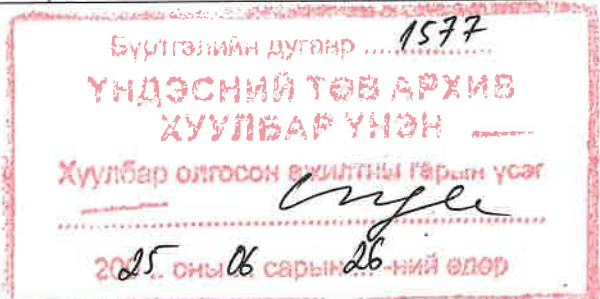 Бүртгэлийн дугаар ..... 1577
ҮНДЭСНИЙ ТӨВ АРХИВ
ХУУЛБАР ҮНЭН
Хуулбар олгосон ажилтны гарын үсэг
2025 оны 06 сарын 26-ний өдөр